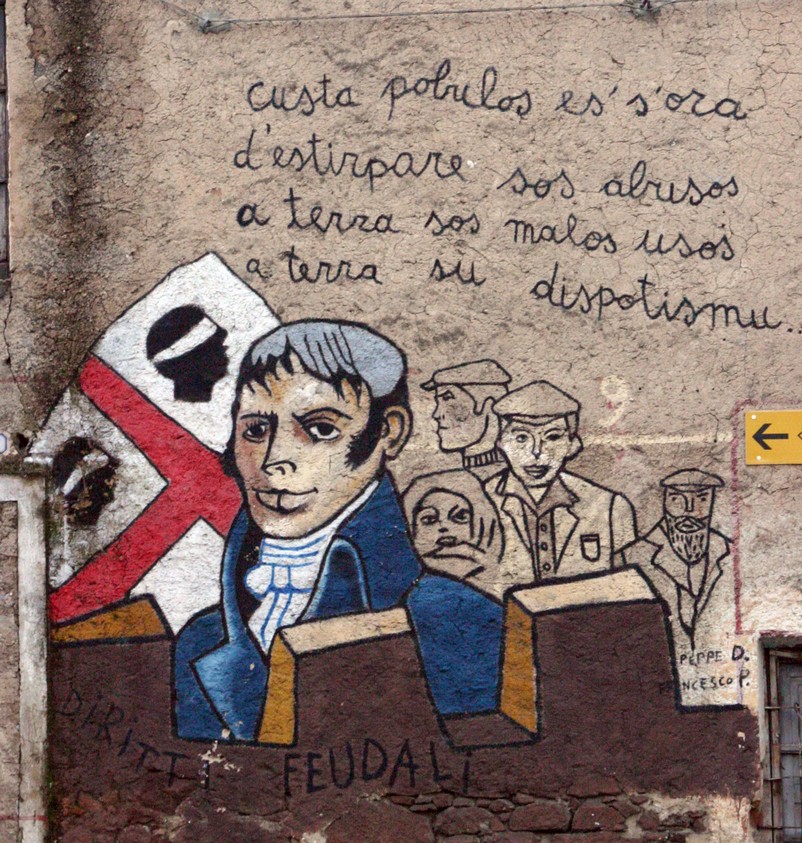 custa pobulos es's'ora
d'estirpare sos abusos
a terra sos malos usos
a terra su dispotismu...
PEPPE D.
FRANCESCO P.
DIRITTI FEUDALI